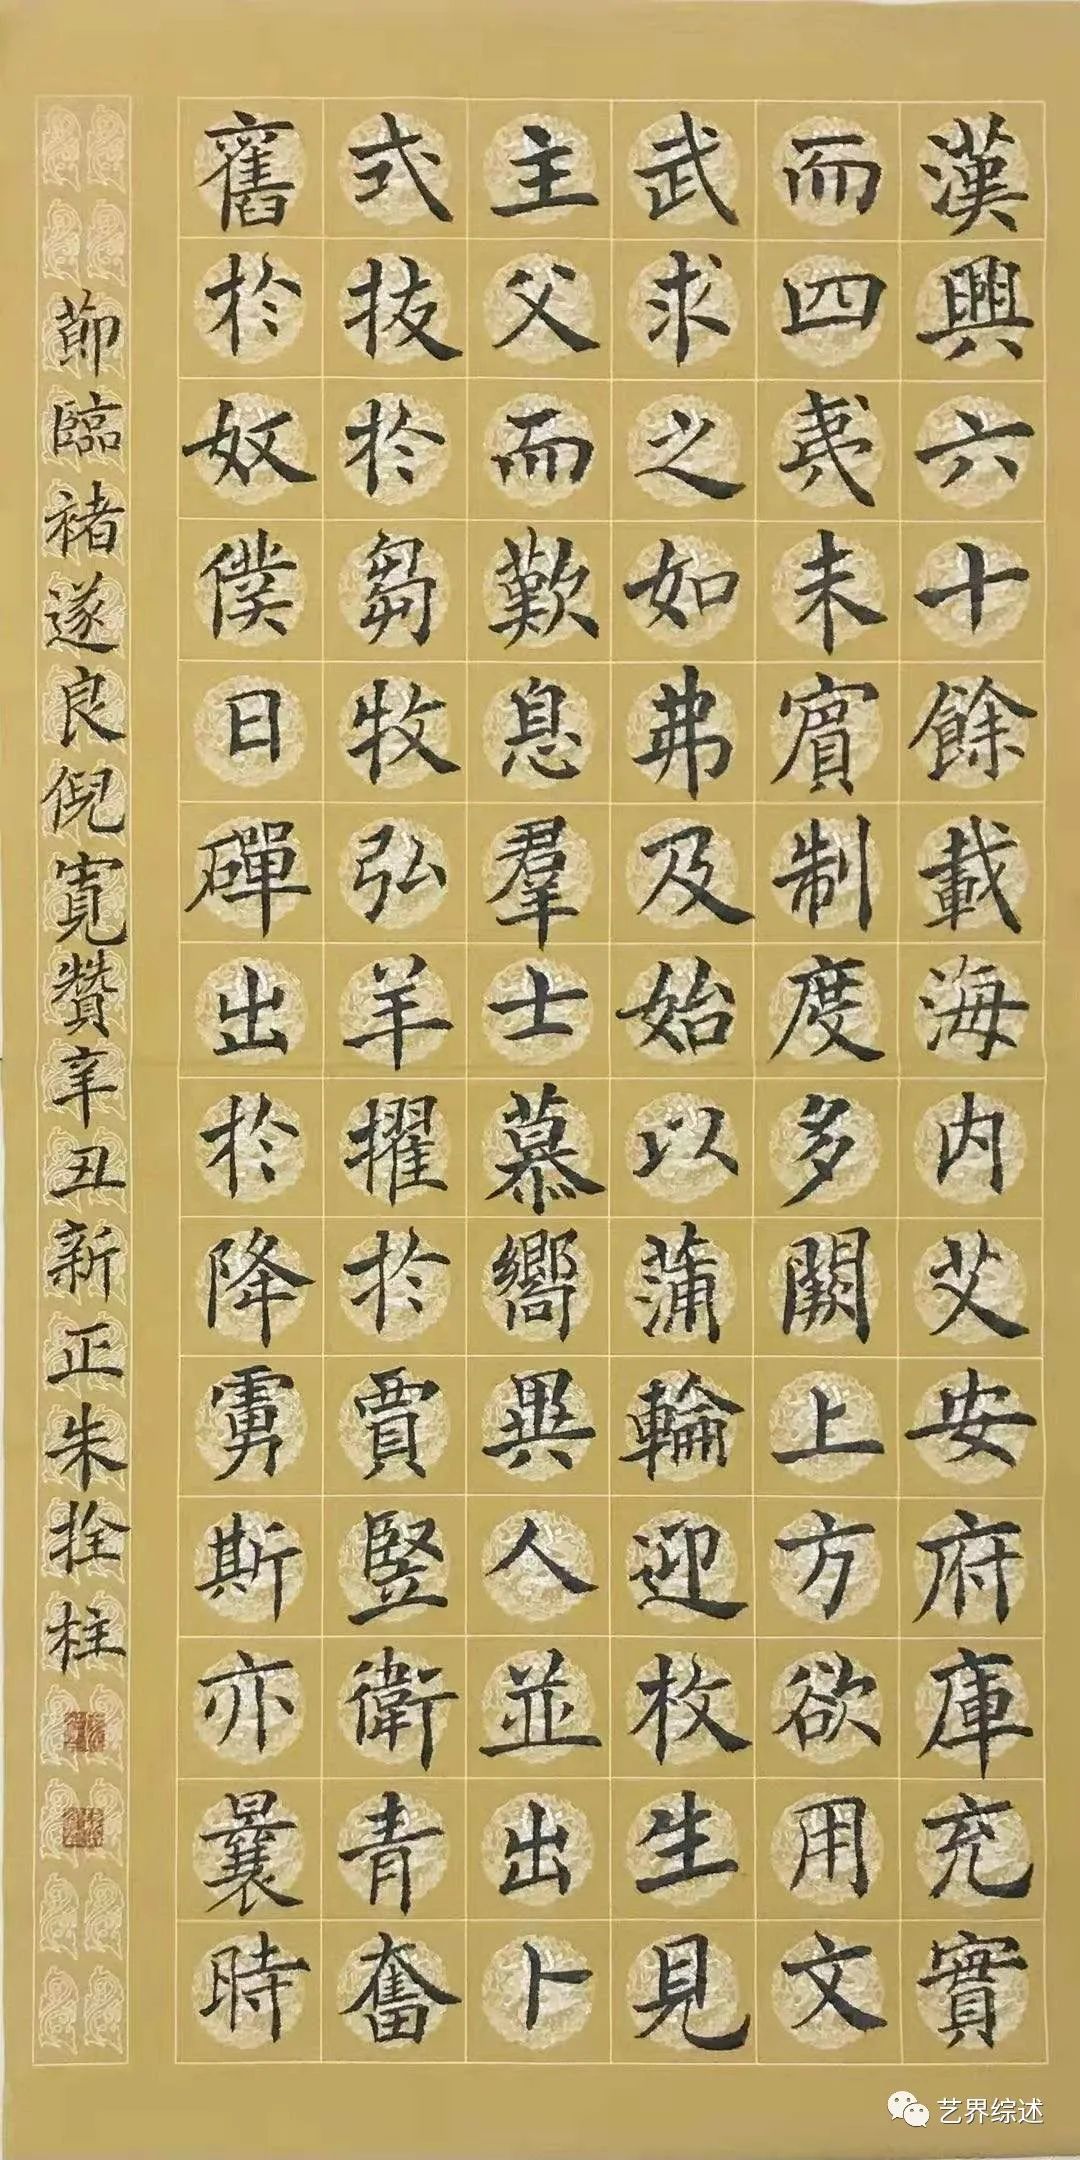 漢興六十餘載海内艾安府庫充實
而四夷未賓制度多闕上方欲用文
武求之如弗及始以蒲輪迎枚生見
主父而歎息羣士慕嚮異人並出卜
式拔於芻牧弘羊擢於賈豎衛青奮
奮於奴僕日磾出於降虜斯亦曩時
節臨褚遂良倪寬贊辛丑新正朱拴柱
艺界综述